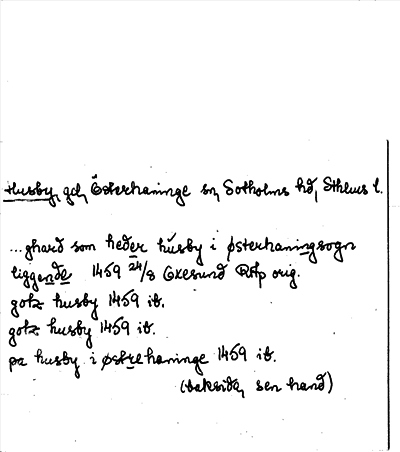 Husby, gd, Österhaninge sn, Sotholms hd, Sthlms l.
...ghard som heder húsby i østerhaningsogn
liggende 1459 24/8 Exesund RAp orig.
gotz husby 1459 ib.
gotz husby 1459 ib.
pa husby i østrehaninge 1459 ib.
(baksida, sen hand)